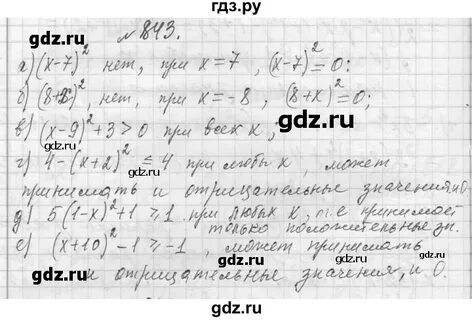 гдз.ру
№ 843.
а) (x-7)² нет, при x = 7, (x-7)² = 0;
б) (8+x)², нет, при x = -8, (8+x)² = 0;
в) (x-9)² + 3 > 0 при всех x;
г) 4-(x+2)² ≤ 4 при любых x, может
принимать и отрицательные значения и 0
д) 5(1-x)² + 1 ≥ 1 при любых x, т.е принимает
только положительные зн.
е) (x+10)² - 1 ≥ -1, может принимать
и отрицательные значения, и 0.
gdz.ru
gdz.ru
gdz.ru
gdz.ru
gdz.ru
gdz.ru
gdz.ru
gdz.ru
gdz.ru
gdz.ru